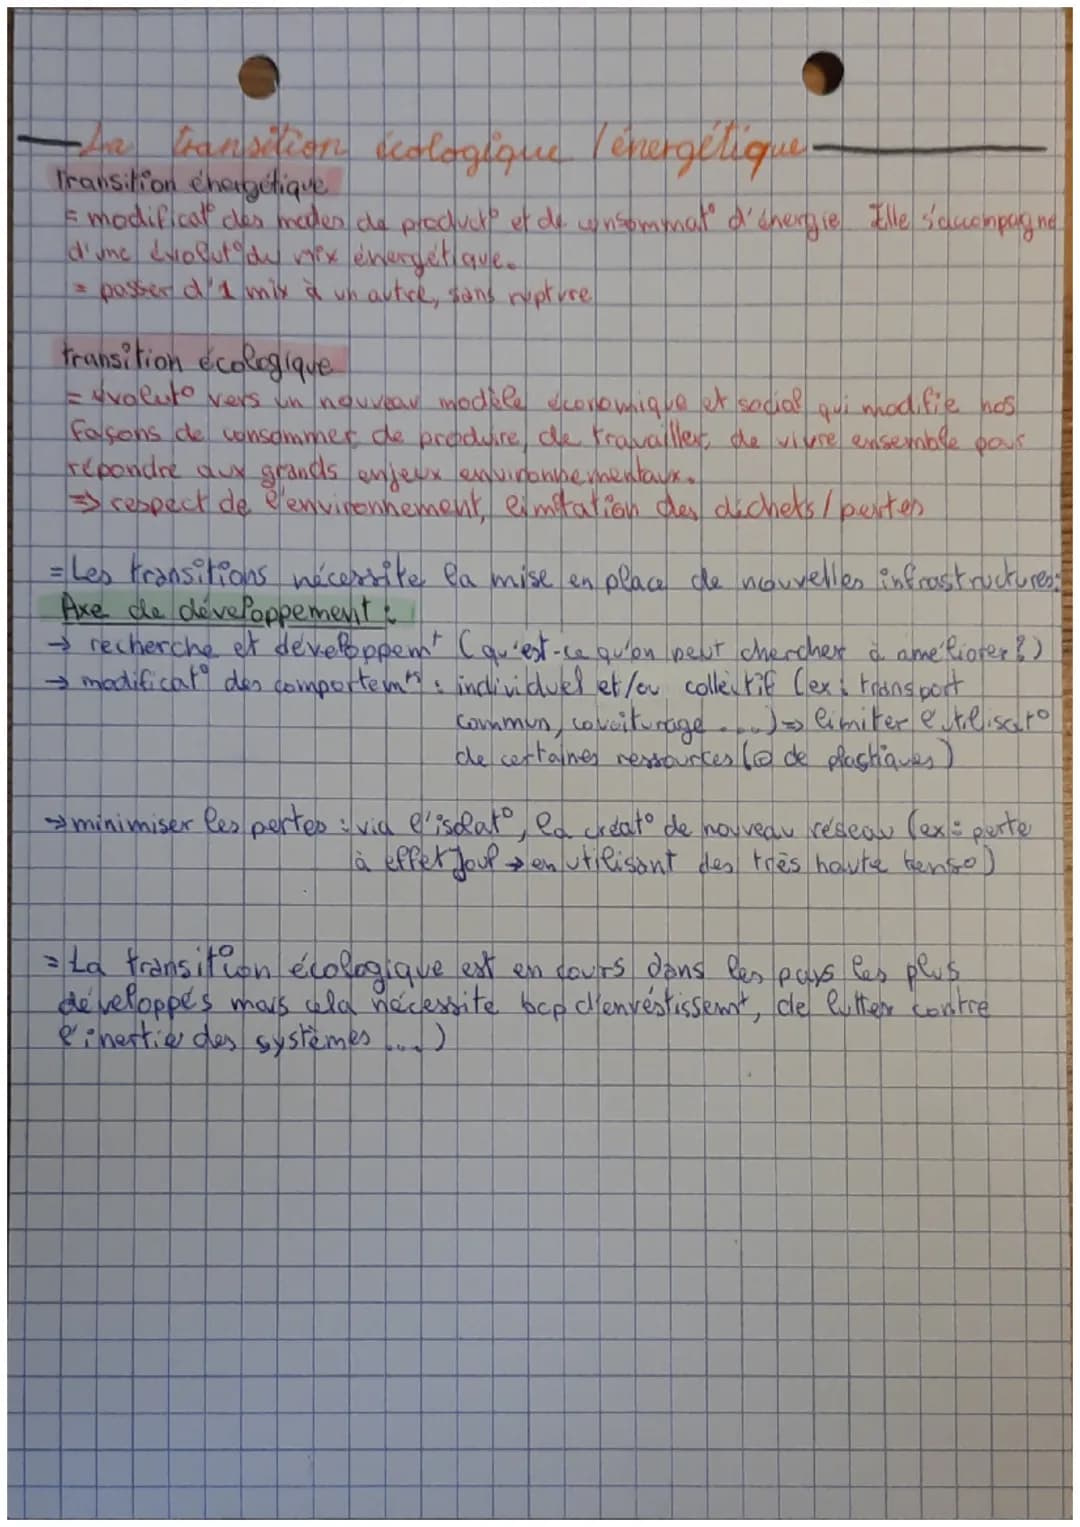 La transition écologique / énergétique
Transition énergétique
= modificat° des modes de product° et de consommat° d'énergie. Elle s'accompagne
d'une évolut° du mix énergétique.
= passer d'1 mix à un autre, sans rupture
transition écologique
= évolut° vers un nouveau modèle économique et social qui modifie nos
façons de consommer de produire, de travailler, de vivre ensemble pour
répondre aux grands enjeux environnementaux.
=> respect de l'environnement, limitation des déchets / pertes
= Les transitions nécessite la mise en place de nouvelles infrastructures:
Axe de développement :
→ recherche et développem^t (qu'est-ce qu'on peut chercher à améliorer ?)
→ modificat° des comportem^ts : individuel et/ou collectif (ex : transport
commun, covoiturage ...) => limiter l'utilisat°
de certaines ressources (⊖ de plastiques)
→ minimiser les pertes : via l'isolat°, la créat° de nouveau réseau (ex : perte
à effet Joul → en utilisant des très haute tens°)
= La transition écologique est en cours dans les pays les plus
développés mais cela nécessite bcp d'envestissem^t, de lutter contre
l'inertie des systèmes ...)